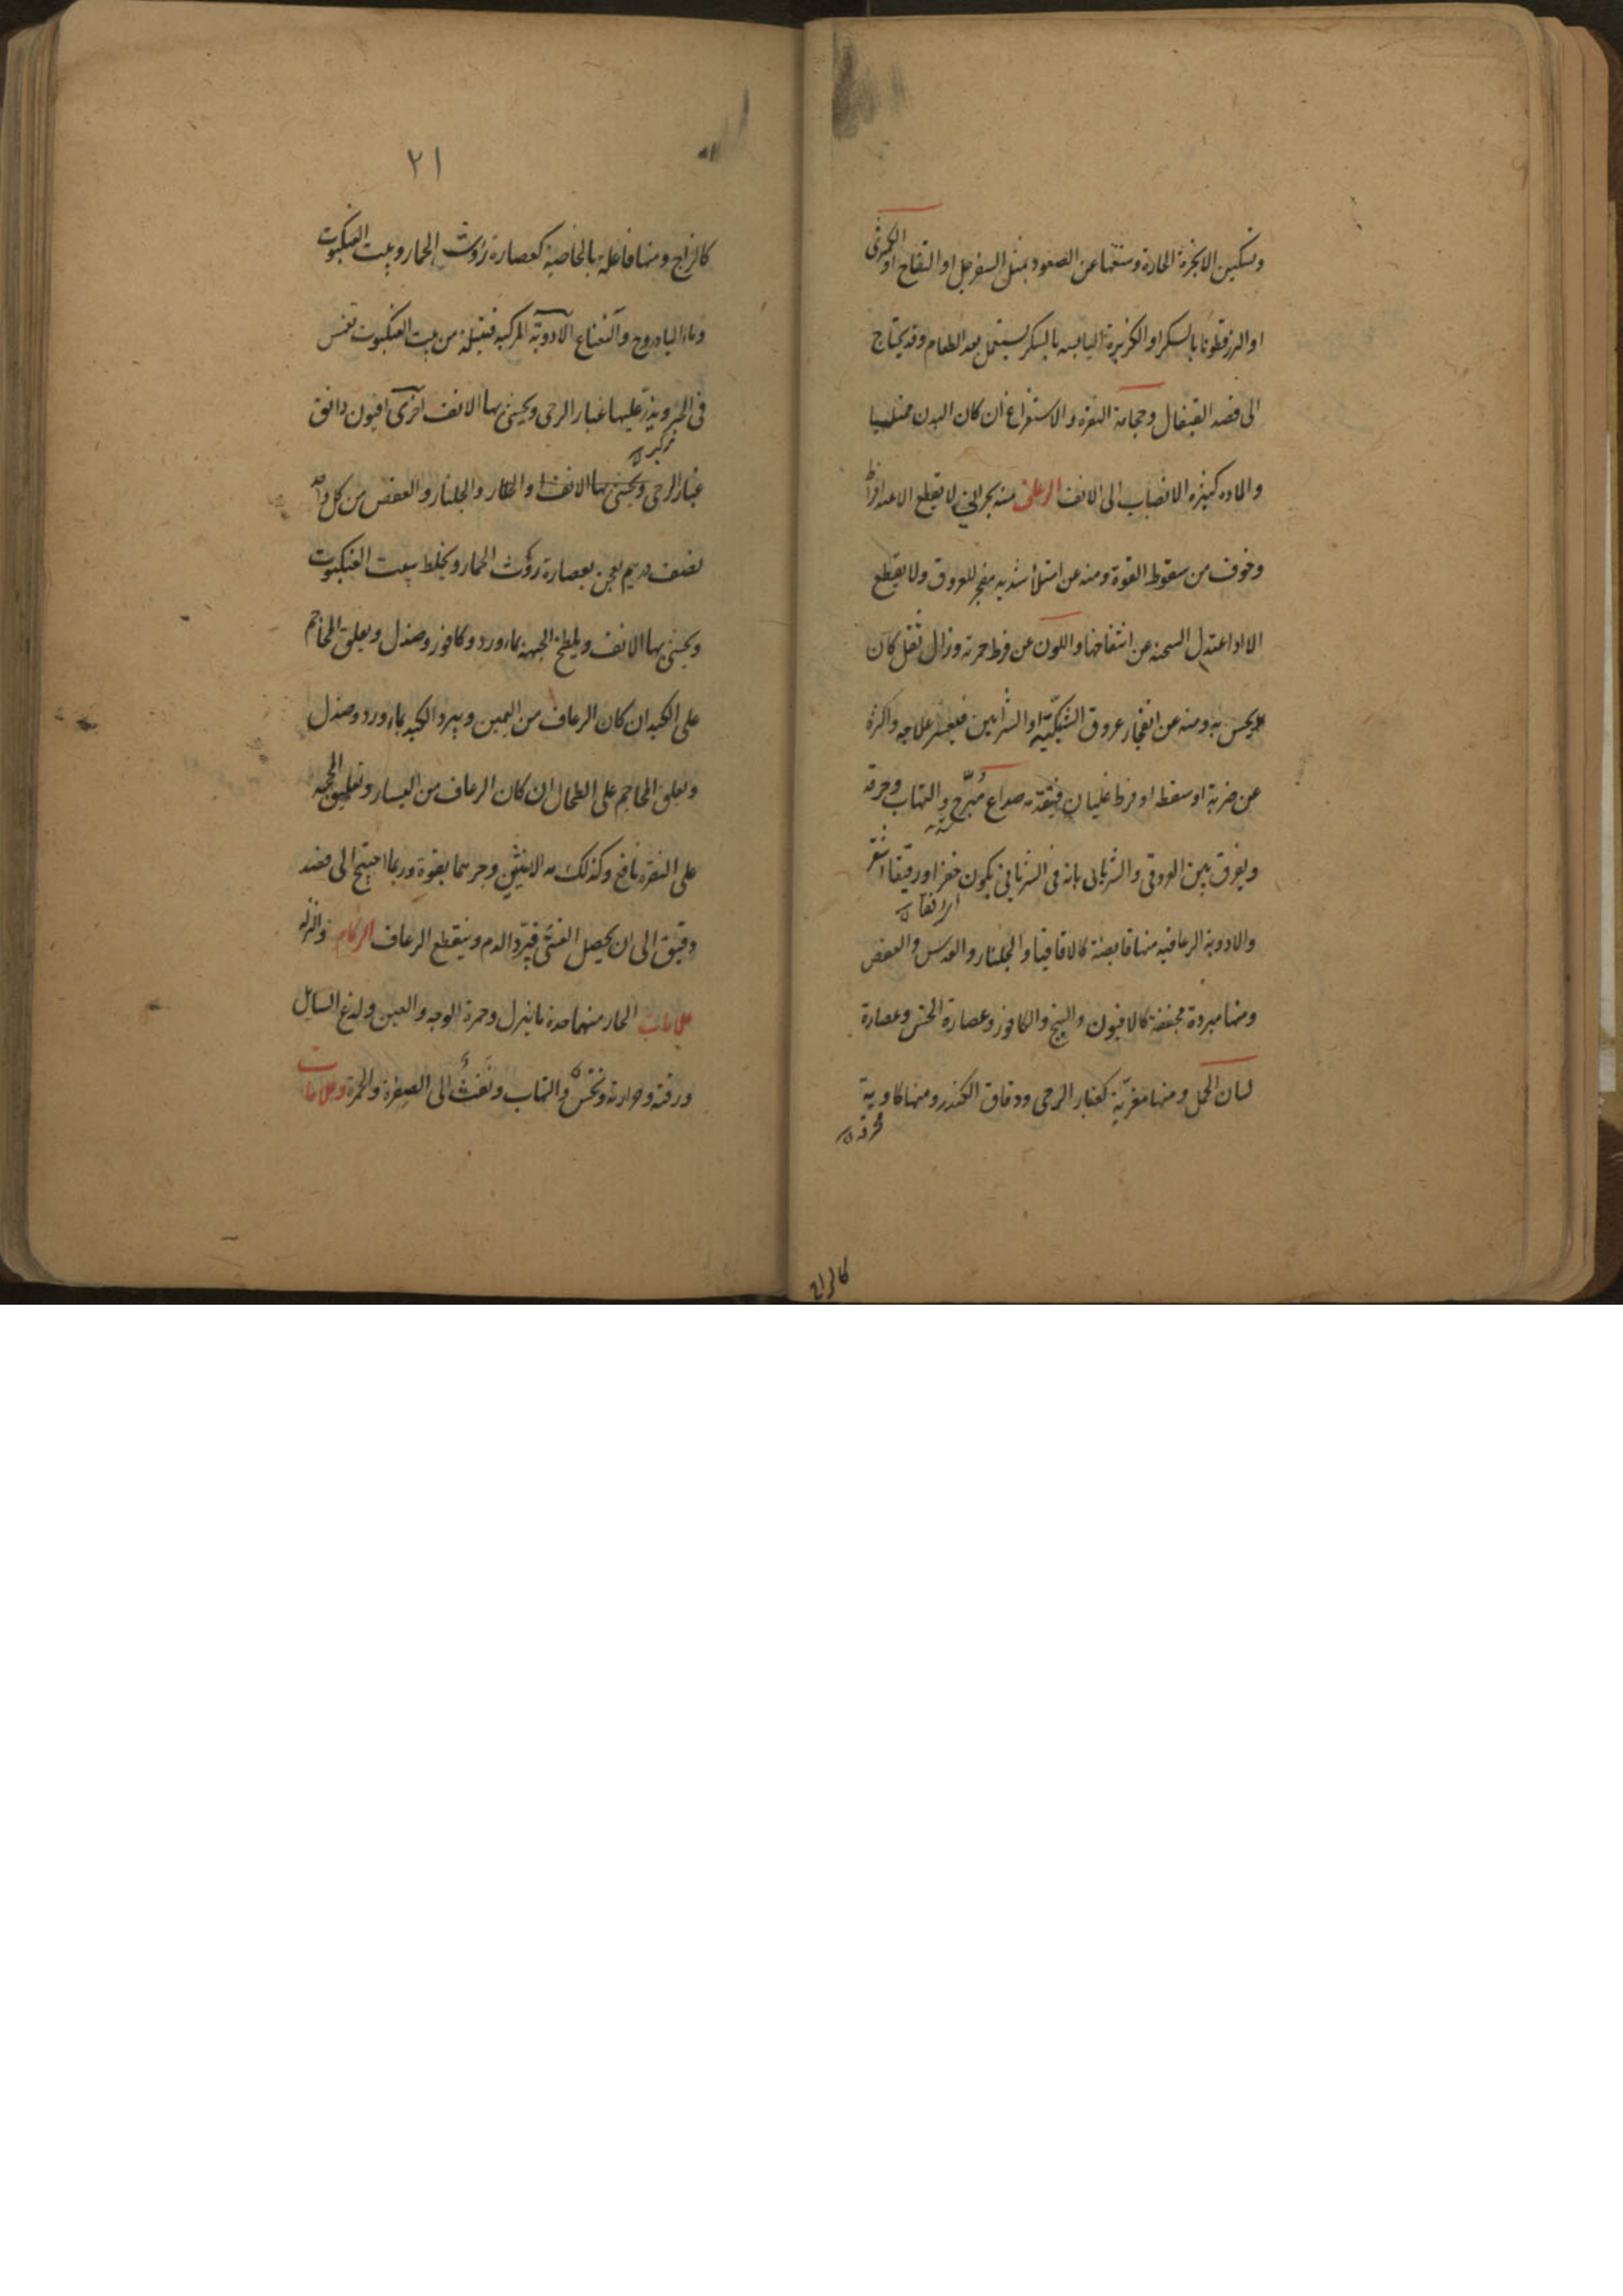 وتسكين الابخرة الحارة ومنعها عن الصعود بمثل السفرجل او التفاح او الكمثرى
او البزرقطونا بالسكر او الكزبرة اليابسه بالسكر يستعمل بعد الطعام وقد يحتاج
الى فصد القيفال وحجامة النقره والاستفراغ ان كان البدن ممتليا
والماده كثيره الانصباب الى الانف الرعاف منه بحراني لا يقطع الا عند افراط
وخوف من سقوط القوة ومنه عن امتلأ شديد مفجر للعروق ولا يقطع
الا اذا اعتدل السحنه عن انتفاخها واللون عن فرط حمرته وزال ثقل كان
يحس به ومنه عن انفجار عروق الشبكيّة او الشرايين فيعسر علاجه واكثره
عن ضربة او سقطه او فرط غليان فيتقدمه صداع مُبرّح والتهاب وحرقه
ويفرق بين العروقى والشريانى بانه فى الشريانى يكون حفزا ورقيقا اشقر
والادوية الرعافيه منها قابضة كالاقاقيا والجلنار والعدس والعفص
ومنها مبردة مجففة كالافيون والبنج والكافور وعصارة الخس وعصارة
لسان الحمل ومنها مغريّة كغبار الرحى ودقاق الكندر ومنها كاوية
محرقه
كالزاج
٢١
كالزاج ومنها فاعله بالخاصية كعصارة روث الحمار وبيت العنكبوت
وماء الباذروج والنعناع الادوية المركبه فتيلة من بيت العنكبوت تغمس
فى الحبر ويذر عليها غبار الرحى ويحشى بها الانف اخرى افيون دانق
غبار الرحى ويحشى بها الانف او والجلنار والعفص من كل واحد
نصف درهم يعجن بعصارة روث الحمار ويخلط ببيت العنكبوت
ويحشى بها الانف ويلطخ الجبهة بماء ورد وكافور وصندل ويعلق المحاجم
على الكبد ان كان الرعاف من اليمين ويبرد الكبد بماء ورد وصندل
وتعلق المحاجم على الطحال ان كان الرعاف من اليسار وتعليق المحجمه
على النقره نافع وكذلك الانثيين وجرهما بقوة وربما احتيج الى فصد
دقيق الى ان يحصل الغشى فيبرد الدم وينقطع الرعاف الزكام والنزله
علامات الحار منهما حدة ما ينزل وحمرة الوجه والعين ولذع السايل
ورقته وحرارته ونخس والتهاب ونَفث الى الصفرة والحمرة وعلامات